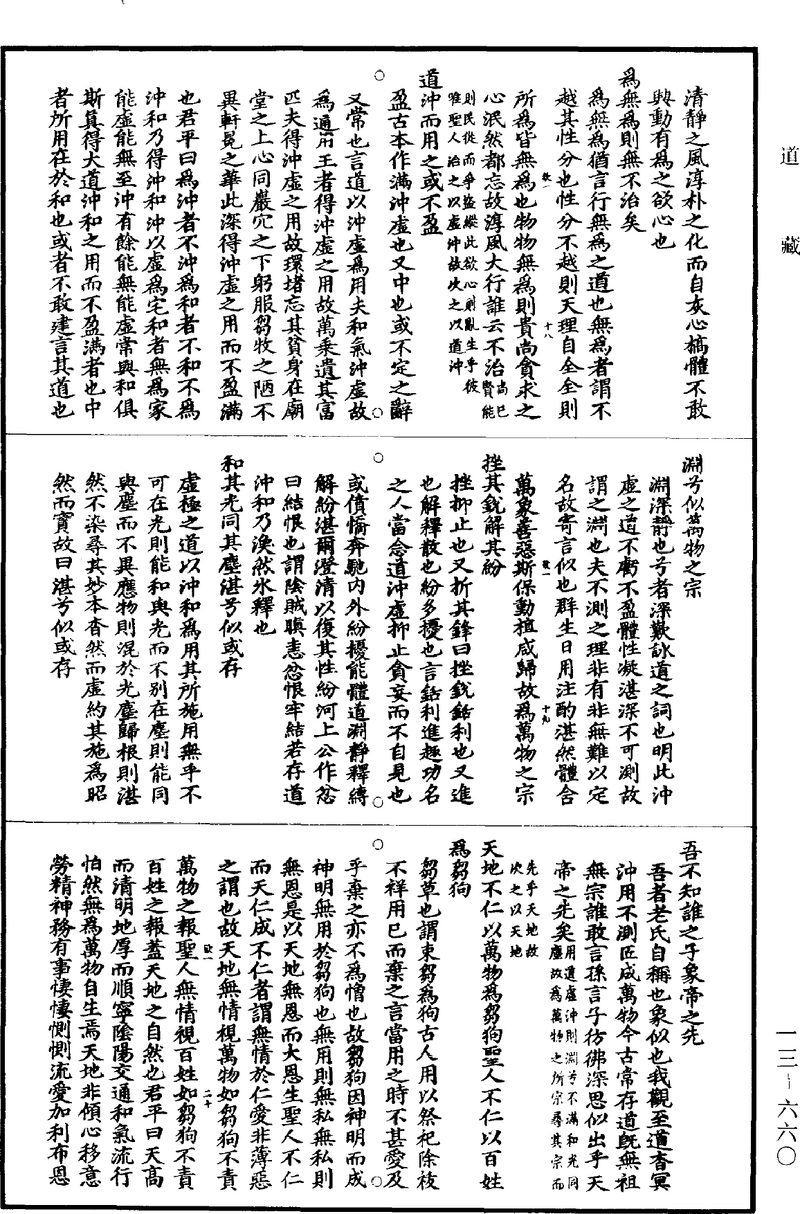 道藏
清靜之風淳朴之化而自灰心槁體不敢
興動有為之欲心也
為無為則無不治矣
為無為猶言行無為之道也無為者謂不
越其性分也性分不越則天理自全全則
所為皆無為也物物無為則貴尚貪求之
心泯然都忘故淳風大行誰云不治尚巳賢能
則民從而爭盜縱此欲心則亂生乎彼
唯聖人治之以虛沖故次之以道沖
道沖而用之或不盈
盈古本作滿沖虛也又中也或不定之辭
又常也言道以沖虛為用夫和氣沖虛故
為通用王者得沖虛之用故萬乘遺其富
匹夫得沖虛之用故環堵忘其貧身在廟
堂之上心同巖穴之下躬服芻牧之陋不
異軒冕之華此深得沖虛之用而不盈滿
也君平曰為沖者不沖為和者不和不為
沖和乃得沖和沖以虛為宅和者無為家
能虛能無至沖有餘能無能虛常與和俱
斯真得大道沖和之用而不盈滿者也中
者所用在於和也或者不敢建言其道也
淵兮似萬物之宗
淵深靜也兮者深歎詠道之詞也明此沖
虛之道不虧不盈體性凝湛深不可測故
謂之淵也夫不測之理非有非無難以定
名故寄言似也群生日用注酌湛然體含
萬象善惡斯保動植咸歸故為萬物之宗
挫其銳解其紛
挫抑止也又折其鋒曰挫銳銛利也又進
也解釋散也紛多擾也言銛利進趣功名
之人當念道沖虛抑止貪妄而不自見也
或憤憍奔馳內外紛擾能體道淵靜釋縛
解紛湛爾澄清以復其性紛河上公作忿
曰結恨也謂陰賊瞋恚忿恨牢結若存道
沖和乃渙然冰釋也
和其光同其塵湛兮似或存
虛極之道以沖和為用其所施用無乎不
可在光則能和與光而不別在塵則能同
與塵而不異應物則混於光塵歸根則湛
然不染尋其妙本杳然而虛約其施為昭
然而實故曰湛兮似或存
吾不知誰之子象帝之先
吾者老氏自稱也象似也我觀至道杳冥
沖用不測匠成萬物今古常存道既無祖
無宗誰敢言孫言子彷彿深思似出乎天
帝之先矣用道虛沖則淵兮不滿和光同
塵故為萬物之所宗尋其宗而
先乎天地故
次之以天地
天地不仁以萬物為芻狗聖人不仁以百姓
為芻狗
芻草也謂束芻為狗古人用以祭祀除祓
不祥用已而棄之言當用之時不甚愛及
乎棄之亦不為憎也故芻狗因神明而成
神明無用於芻狗也無用則無私無私則
無恩是以天地無恩而大恩生聖人不仁
而天仁成不仁者謂無情於仁愛非薄惡
之謂也故天地無情視萬物如芻狗不責
萬物之報聖人無情視百姓如芻狗不責
百姓之報蓋天地之自然也君平曰天高
而清明地厚而順寧陰陽交通和氣流行
怕然無為萬物自生焉天地非傾心移意
勞精神務有事悽悽惻惻流愛加利布恩
一三—六六〇